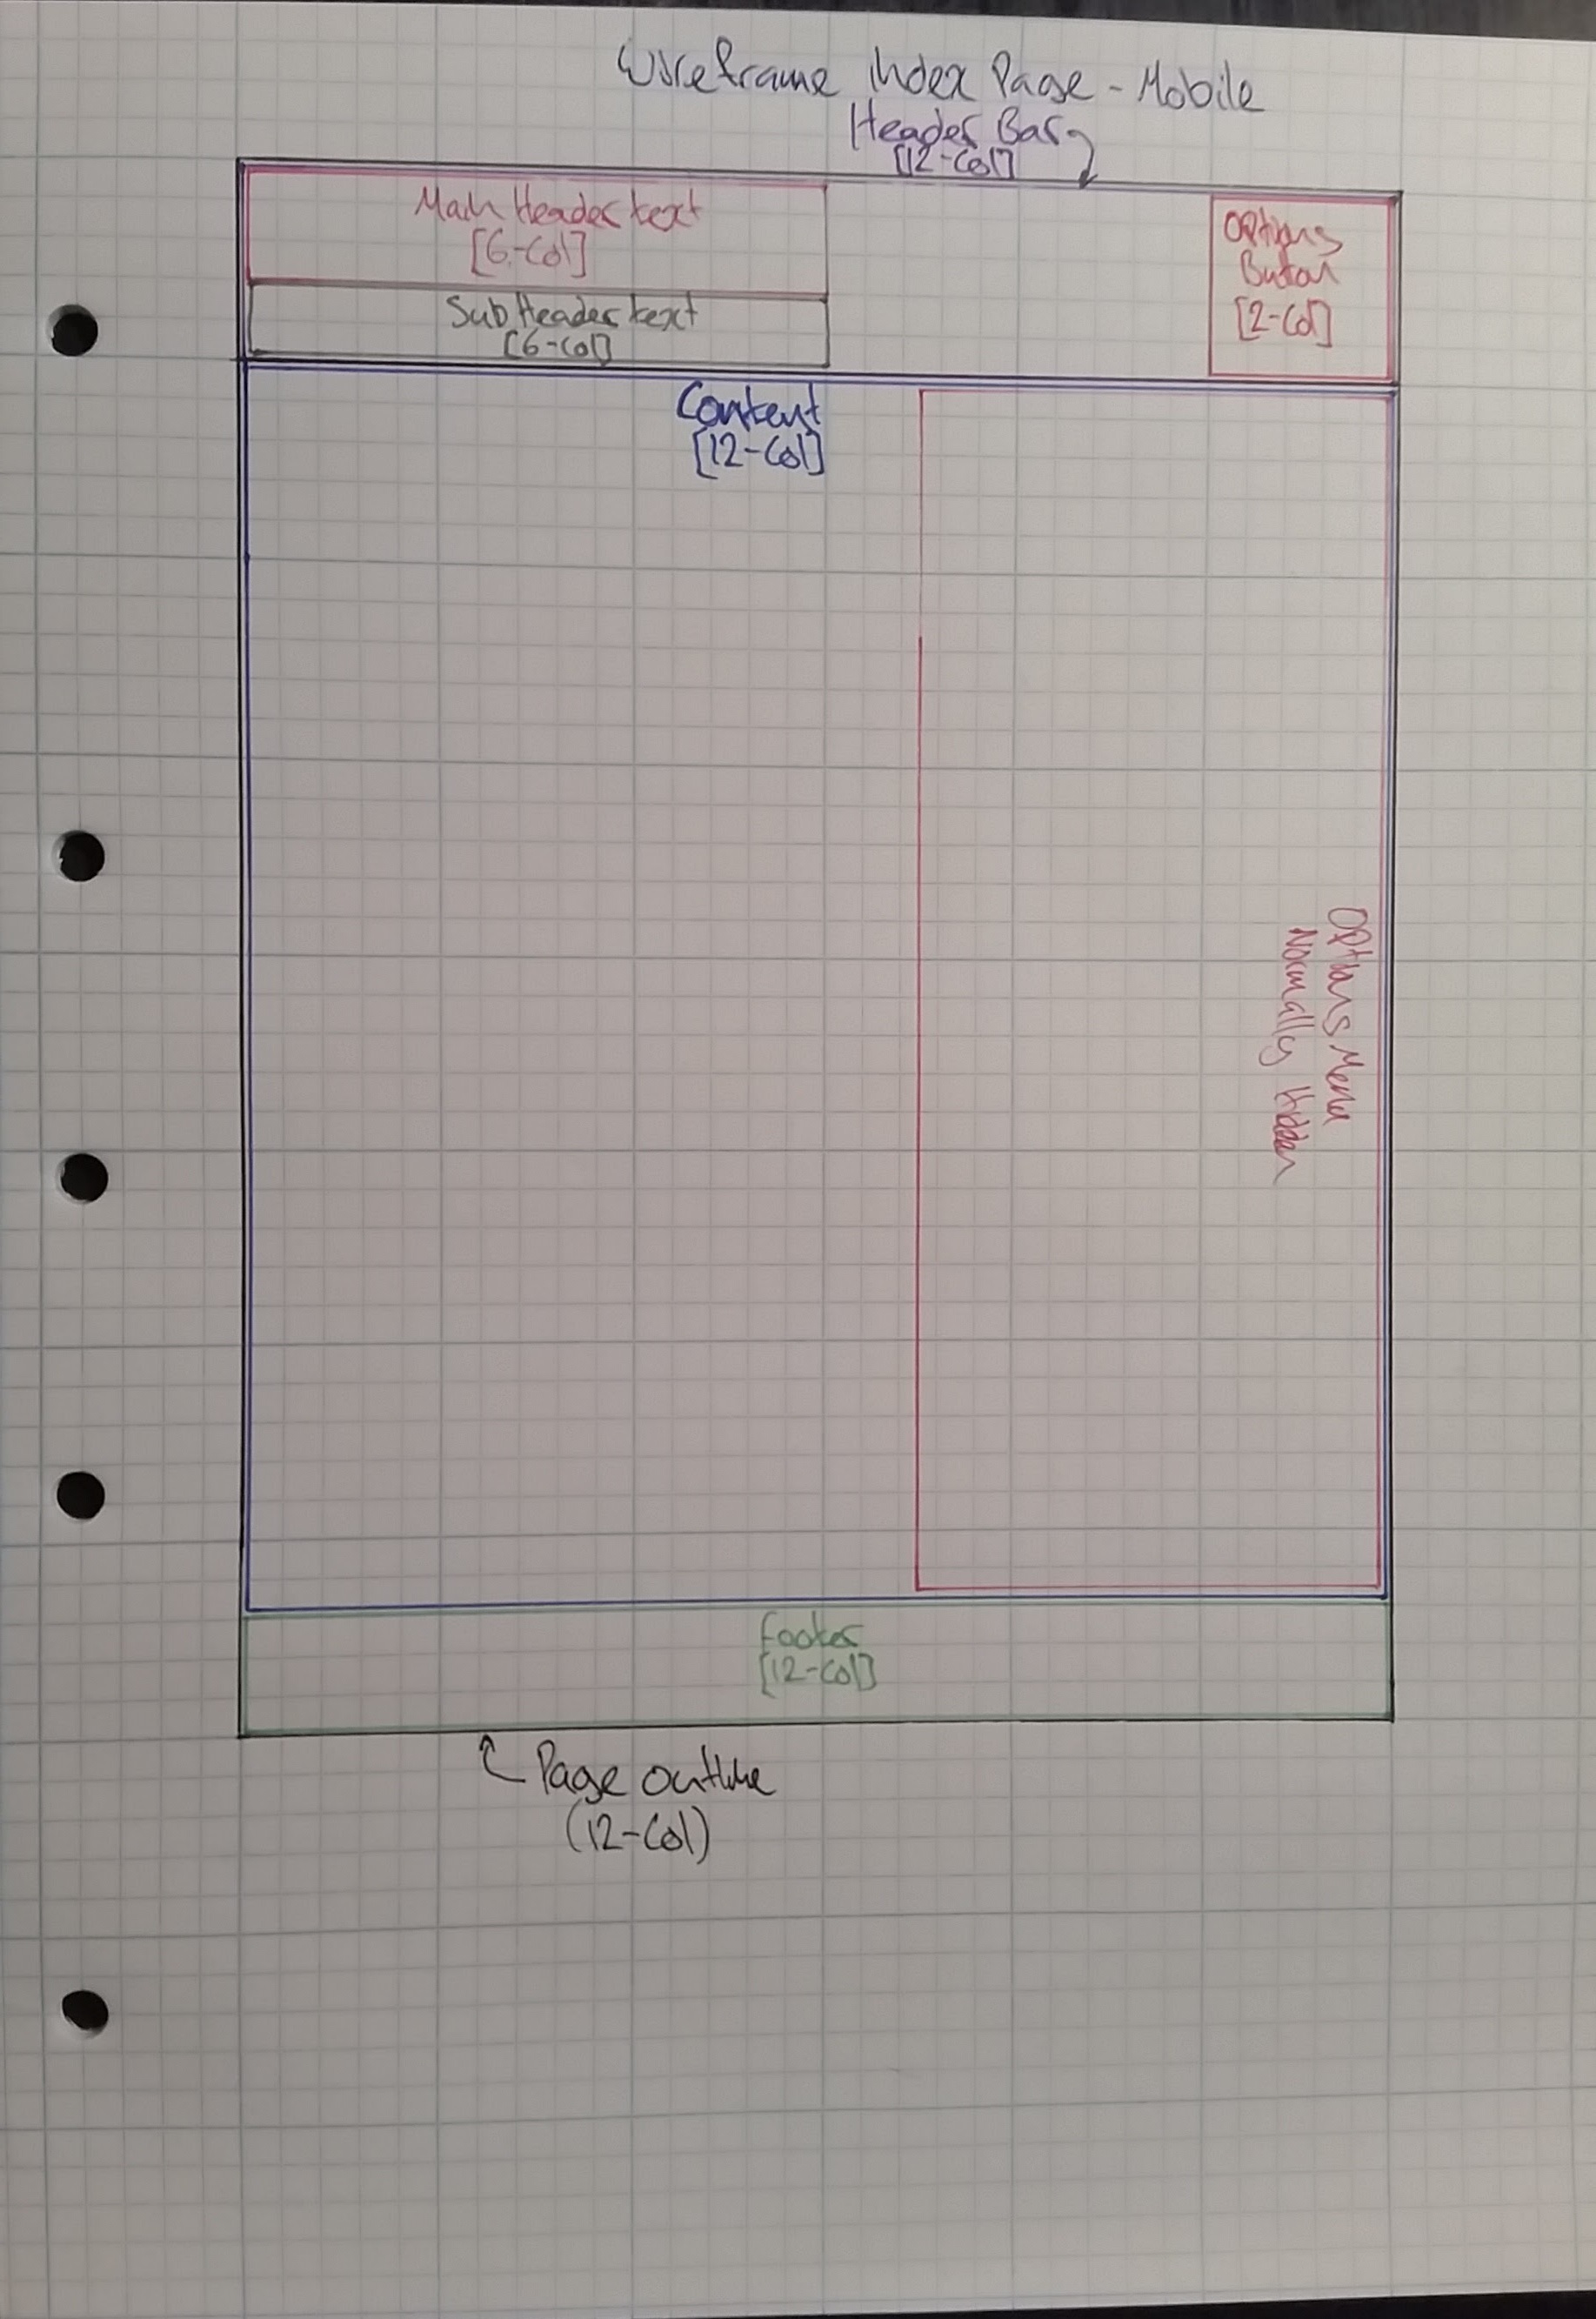 Wireframe Index Page - Mobile
Header Bar
[12-Col]
Main Header text
[6-Col]
Options
Button
[2-Col]
Sub Header text
[6-Col]
Content
[12-Col]
Options Menu
Normally Hidden
Footer
[12-Col]
Page outline
(12-Col)